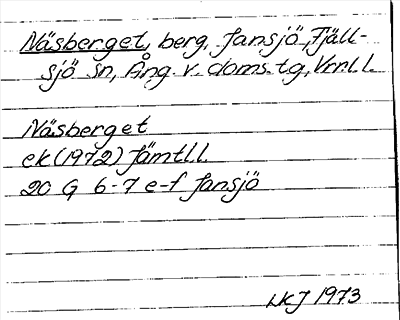 Näsberget, berg, Jansjö, Fjäll-
sjö sn, Ång. v. doms.tg, Vrnl.l.
Näsberget
ek (1972) Jämtl.l.
20 G 6-7 e-f Jansjö
LKJ 1973